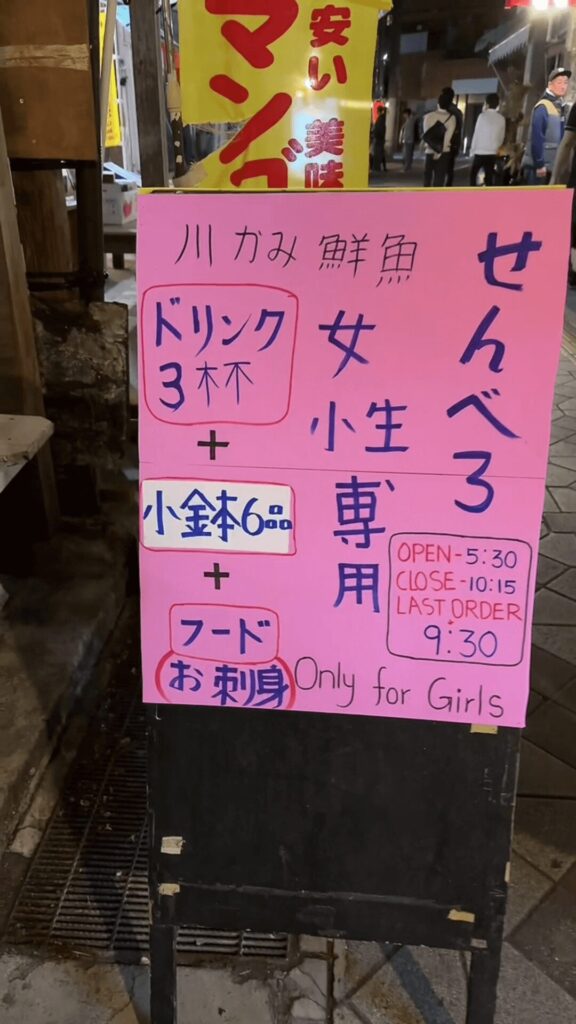 マン
安い 美味
川かみ鮮魚
せんべろ
女性専用
ドリンク
3杯
+
小鉢6品
+
フード
お刺身
OPEN-5:30
CLOSE-10:15
LAST ORDER
9:30
Only for Girls